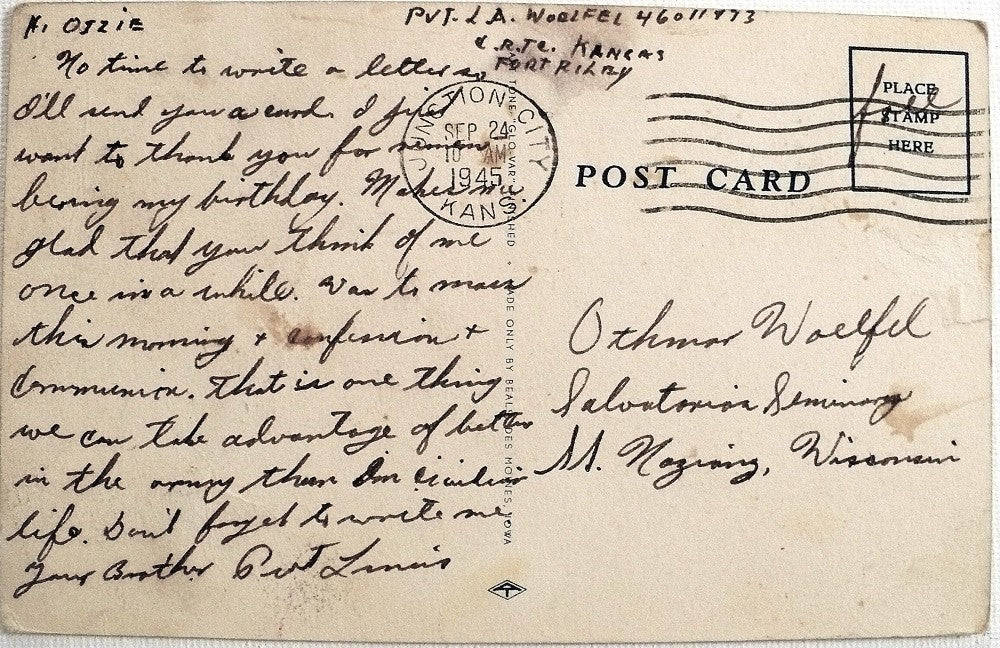 Hi OZZIE
PVT. L A. WOELFEL 46011973
C.R.T.C. KANSAS
FORT RILEY
No time to write a letter so
I'll send you a card. I just
want to thank you for remem
bering my birthday. Makes me
glad that you think of me
once in a while. Was to mass
this morning + confession +
Communion. That is one thing
we can take advantage of better
in the army than in civilian
life. Don't forget to write me.
Your Brother Pvt Louis
JUNCTION CITY
SEP 24
10 AM
1945
KANS.
TONE "GLO-VAR" FINISHED • MADE ONLY BY BEALS, DES MOINES, IOWA
POST CARD
PLACE
STAMP
HERE
free
Othmar Woelfel
Salvatorian Seminary
St. Nazianz, Wisconsin